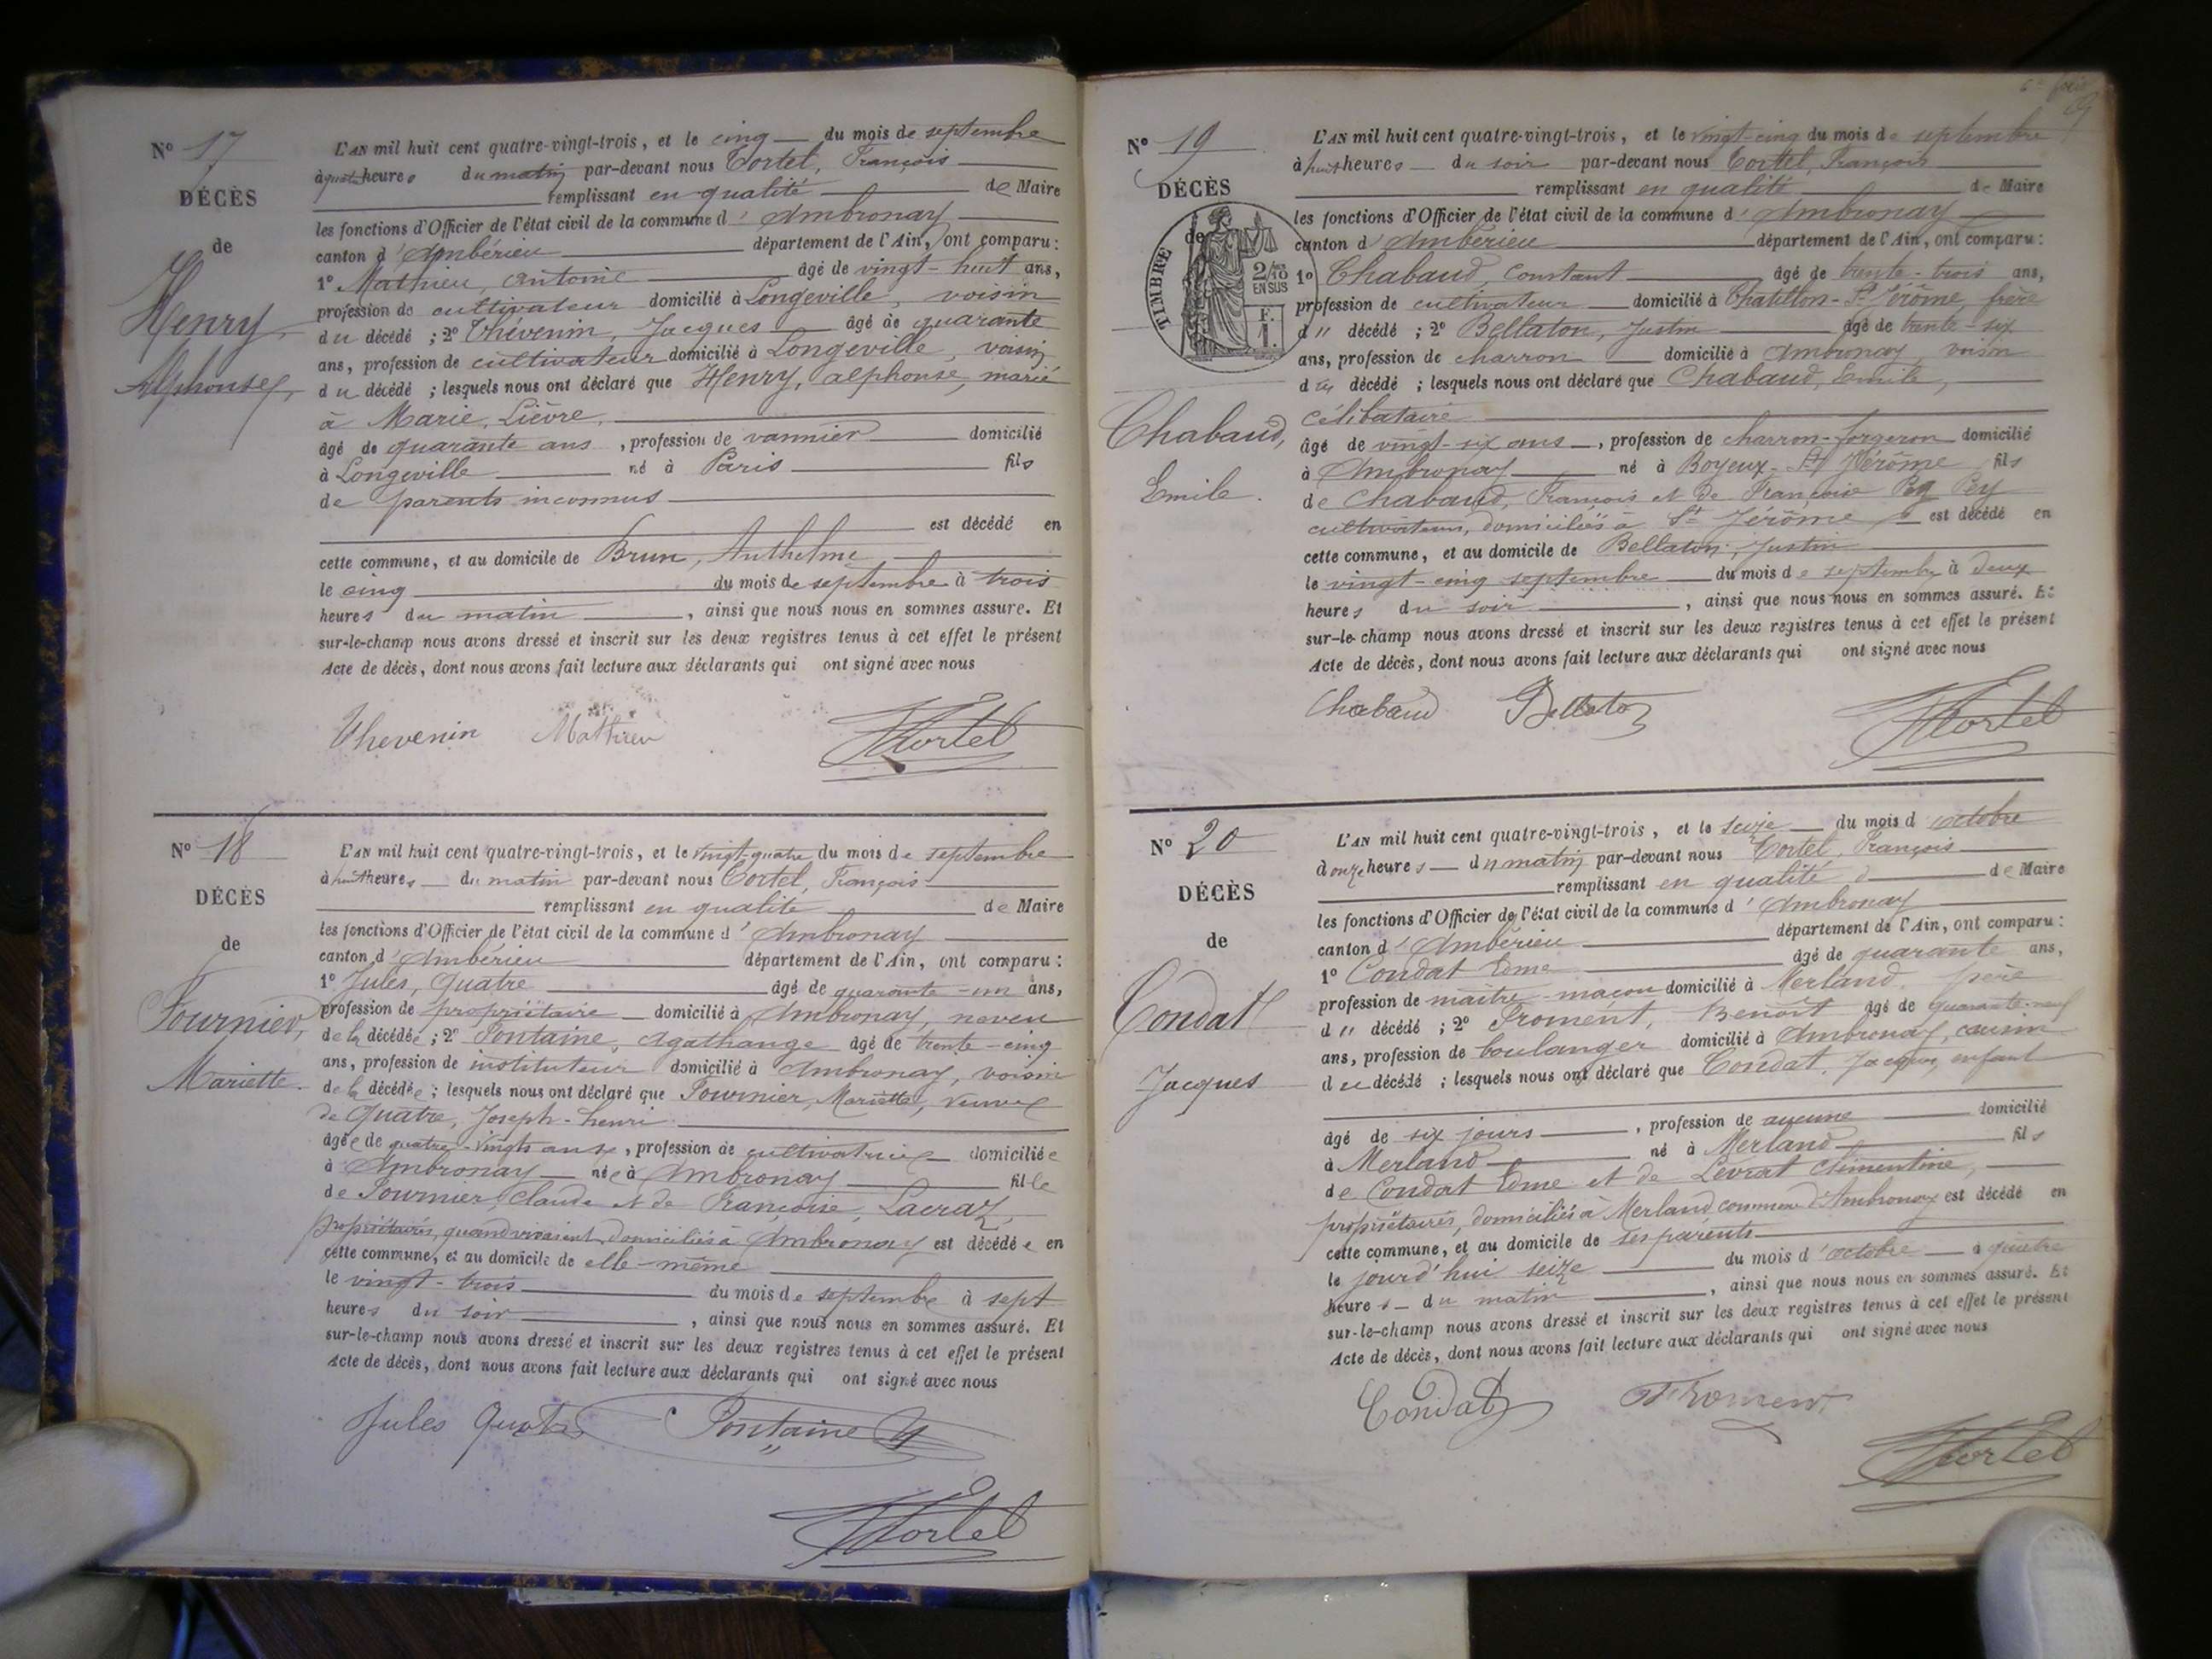 N° 17
DÉCÈS
de
Henry,
Alphonse,
L'AN mil huit cent quatre-vingt-trois, et le cinq du mois de septembre
à quatre heures du matin par-devant nous Tortel, François
remplissant en qualité de Maire
les fonctions d'Officier de l'état civil de la commune d'Ambronay
canton d'Ambérieu département de l'Ain, ont comparu :
1° Mathieu, Antoine âgé de vingt-huit ans,
profession de cultivateur domicilié à Longeville, voisin
du décédé ; 2° Thévenin, Jacques âgé de quarante
ans, profession de cultivateur domicilié à Longeville, voisin
du décédé ; lesquels nous ont déclaré que Henry, alphonse, marié
à Marie, Lièvre,
âgé de quarante ans, profession de vannier domicilié
à Longeville né à Paris fils
de parents inconnus
est décédé en
cette commune, et au domicile de Brun, Anthelme
le cinq du mois de septembre à trois
heures du matin, ainsi que nous nous en sommes assuré. Et
sur-le-champ nous avons dressé et inscrit sur les deux registres tenus à cet effet le présent
Acte de décès, dont nous avons fait lecture aux déclarants qui ont signé avec nous
Thevenin Mathieu Tortel
N° 18
DÉCÈS
de
Fournier,
Mariette.
L'AN mil huit cent quatre-vingt-trois, et le vingt-quatre du mois de septembre
à huit heures du matin par-devant nous Tortel, François
remplissant en qualité de Maire
les fonctions d'Officier de l'état civil de la commune d'Ambronay
canton d'Ambérieu département de l'Ain, ont comparu :
1° Jules, Quatre âgé de quarante-un ans,
profession de propriétaire domicilié à Ambronay, neveu
de la décédée ; 2° Fontaine, Agathange âgé de trente-cinq
ans, profession de instituteur domicilié à Ambronay, voisin
de la décédée ; lesquels nous ont déclaré que Fournier, Mariette, veuve
de Quatre, Joseph-henri
âgée de quatre-vingts ans, profession de cultivatrice domiciliée
à Ambronay née à Ambronay fille
de Fournier, Claude et de Françoise, Lacraz,
propriétaires, quand vivaient domiciliés à Ambronay est décédée en
cette commune, et au domicile de elle-même
le vingt-trois du mois de septembre à sept
heures du soir, ainsi que nous nous en sommes assuré. Et
sur-le-champ nous avons dressé et inscrit sur les deux registres tenus à cet effet le présent
Acte de décès, dont nous avons fait lecture aux déclarants qui ont signé avec nous
Jules Quatre Fontaine
Tortel
N° 19
DÉCÈS
de
TIMBRE
2/10 EN SUS
F. 1.
Chabaud,
Emile.
L'AN mil huit cent quatre-vingt-trois, et le vingt-cinq du mois de septembre
à huit heures du soir par-devant nous Tortel, François
remplissant en qualité de Maire
les fonctions d'Officier de l'état civil de la commune d'Ambronay
canton d'Ambérieu département de l'Ain, ont comparu :
1° Chabaud, Constant âgé de trente-trois ans,
profession de cultivateur domicilié à Chatillon-St Jérôme, frère
du décédé ; 2° Bellaton, Justin âgé de trente-six
ans, profession de charron domicilié à Ambronay, voisin
du décédé ; lesquels nous ont déclaré que Chabaud, Emile,
célibataire
âgé de vingt-six ans, profession de charron-forgeron domicilié
à Ambronay né à Boyeux-St Jérôme fils
de Chabaud, François et de Françoise Pey
cultivateurs, domiciliés à St Jérôme est décédé en
cette commune, et au domicile de Bellaton, Justin
le vingt-cinq septembre du mois de septembre à deux
heures du soir, ainsi que nous nous en sommes assuré. Et
sur-le-champ nous avons dressé et inscrit sur les deux registres tenus à cet effet le présent
Acte de décès, dont nous avons fait lecture aux déclarants qui ont signé avec nous
Chabaud Bellaton Tortel
N° 20
DÉCÈS
de
Condat
Jacques
L'AN mil huit cent quatre-vingt-trois, et le seize du mois d'octobre
à onze heures du matin par-devant nous Tortel, François
remplissant en qualité de Maire
les fonctions d'Officier de l'état civil de la commune d'Ambronay
canton d'Ambérieu département de l'Ain, ont comparu :
1° Condat Edme âgé de quarante ans,
profession de maître-maçon domicilié à Merland, père
du décédé ; 2° Froment, Benoît âgé de quarante-neuf
ans, profession de boulanger domicilié à Ambronay, cousin
du décédé ; lesquels nous ont déclaré que Condat, Jacques, enfant
âgé de six jours, profession de aucune domicilié
à Merland né à Merland fils
de Condat Edme et de Levrat Clémentine,
propriétaires, domiciliés à Merland commune d'Ambronay est décédé en
cette commune, et au domicile de ses parents
le jourd'hui seize du mois d'octobre à quatre
heures du matin, ainsi que nous nous en sommes assuré. Et
sur-le-champ nous avons dressé et inscrit sur les deux registres tenus à cet effet le présent
Acte de décès, dont nous avons fait lecture aux déclarants qui ont signé avec nous
Condat Froment
Tortel